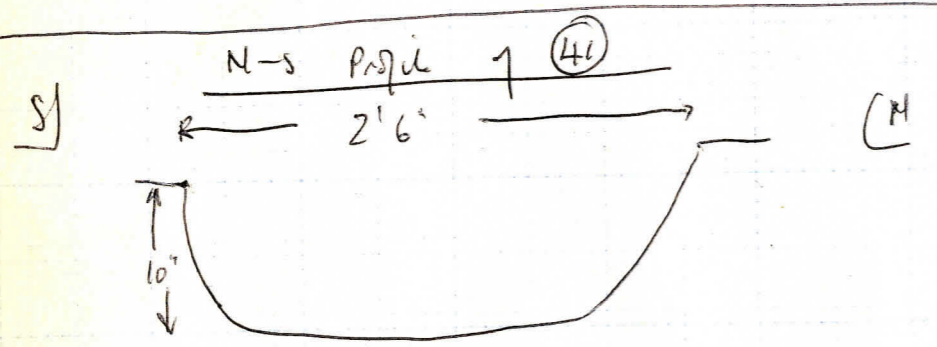 N-S Profile of 41
S
2' 6"
N
10"